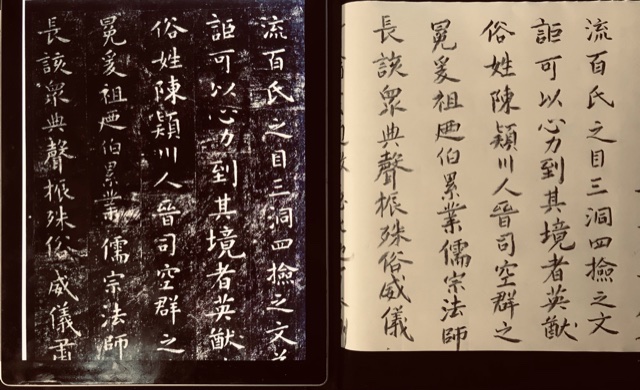 流百氏之目三洞四撿之文
詎可以心力到其境者英猷
俗姓陳穎川人晉司空群之
冕爰祖廼伯累業儒宗法師
長該眾典聲振殊俗威儀肅
流百氏之目三洞四撿之文
詎可以心力到其境者英猷
俗姓陳穎川人晉司空群之
冕爰祖廼伯累業儒宗法師
長該眾典聲振殊俗威儀